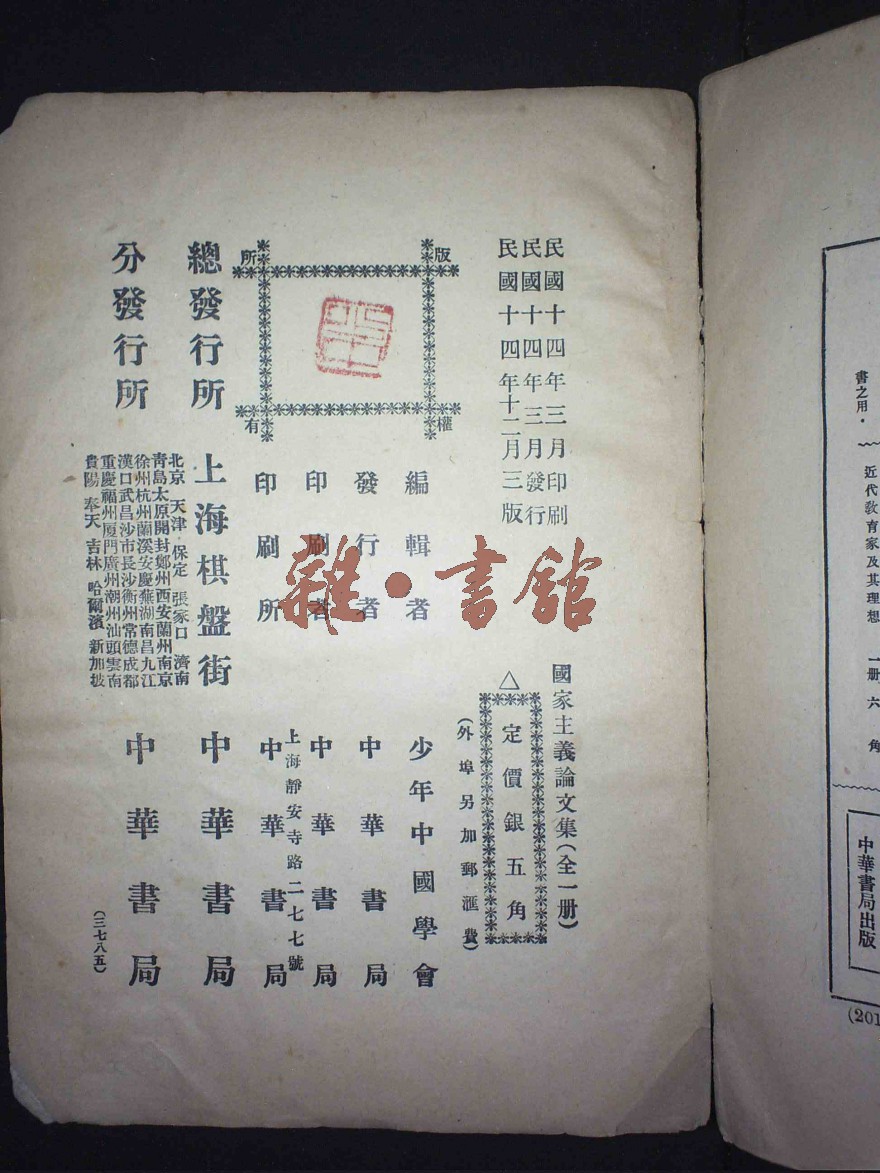 民國十四年三月印刷
民國十四年三月發行
民國十四年十二月三版
國家主義論文集(全一册)
△
定價銀五角
(外埠另加郵滙費)
版權所有
編輯者 少年中國學會
發行者 中華書局
印刷者 中華書局
上海靜安寺路二七七號
印刷所 中華書局
總發行所 上海棋盤街 中華書局
分發行所 中華書局
北京 天津 保定 張家口 濟南
靑島太原開封鄭州西安蘭州南京
徐州杭州蘭溪安慶蕪湖南昌九江
漢口武昌沙市長沙衡州常德成都
重慶福州厦門廣州潮州汕頭雲南
貴陽 奉天 吉林 哈爾濱 新加坡
(三七八五)
雜·書館
書之用。
近代敎育家及其理想 一册 六角
中華書局出版
(201